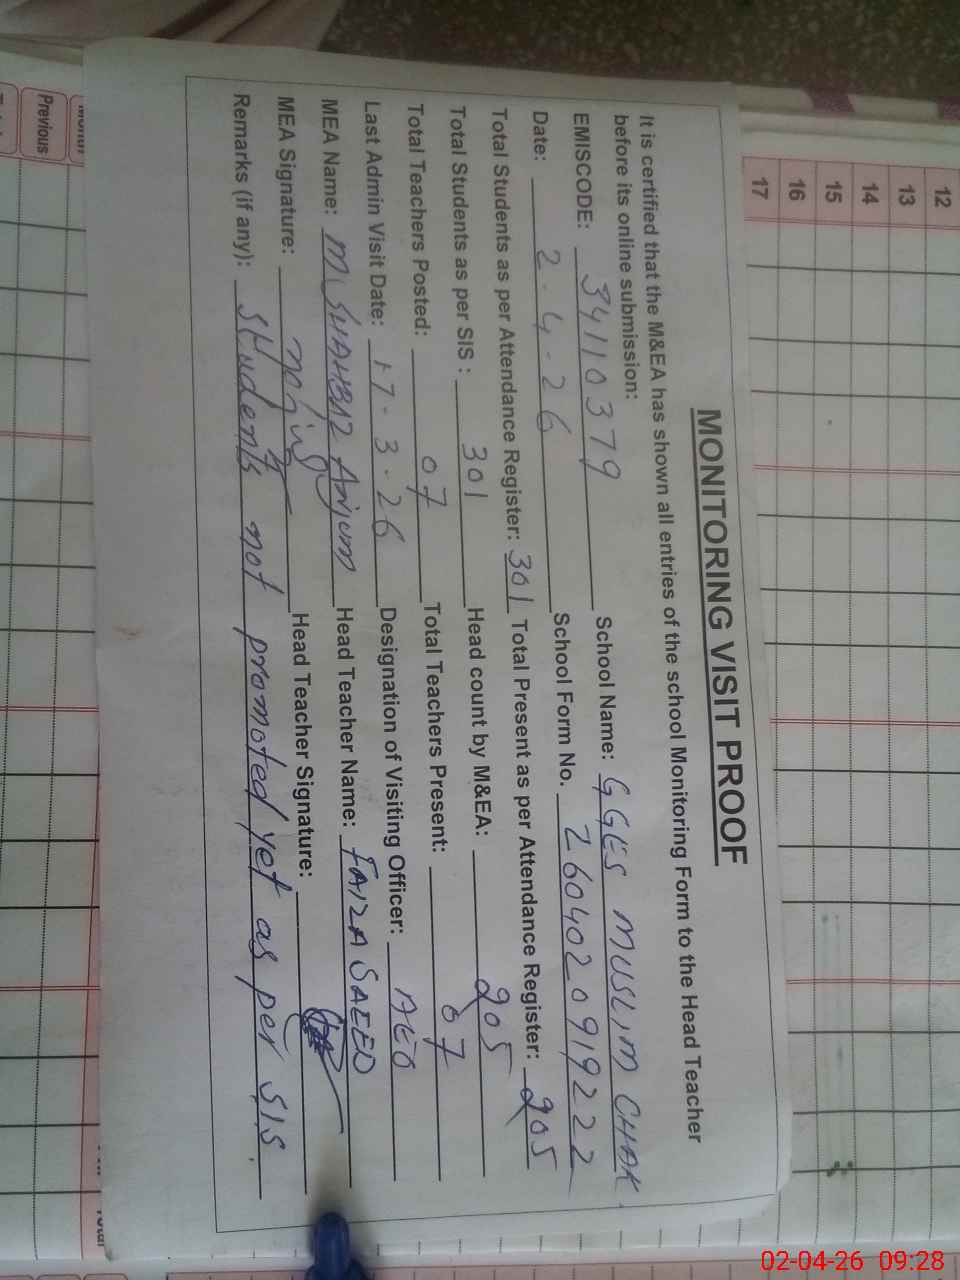 MONITORING VISIT PROOF
It is certified that the M&EA has shown all entries of the school Monitoring Form to the Head Teacher
before its online submission:
EMISCODE: 34110379 School Name: GGES MUSLIM CHAK
Date: 2-4-26 School Form No. 260402091922 2
Total Students as per Attendance Register: 301 Total Present as per Attendance Register: 205
Total Students as per SIS : 301 Head count by M&EA: 205
Total Teachers Posted: 07 Total Teachers Present: 07
Last Admin Visit Date: 17-3-26 Designation of Visiting Officer: AEO
MEA Name: M SHAHBAZ Anjum Head Teacher Name: FAIZA SAEED
MEA Signature: Head Teacher Signature:
Remarks (if any): Students not promoted yet as per SIS.
12
13
14
15
16
17
Previous
Month
Total
02-04-26 09:28